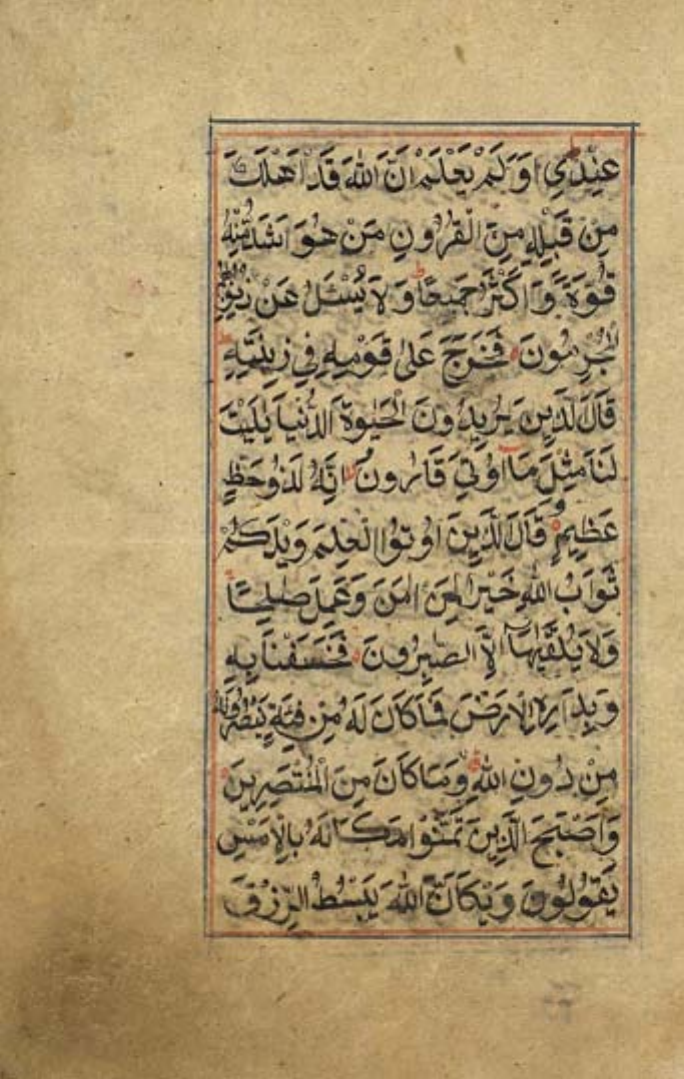 عِنْدِيْ اَوَلَمْ يَعْلَمْ اَنَّ اللهَ قَدْ اَهْلَكَ
مِنْ قَبْلِهٖ مِنَ الْقُرُوْنِ مَنْ هُوَ اَشَدُّ مِنْهُ
قُوَّةً وَّاَكْثَرُ جَمْعًا ط وَلَا يُسْئَلُ عَنْ ذُنُوْبِهِمُ
الْمُجْرِمُوْنَ فَخَرَجَ عَلٰى قَوْمِهٖ فِيْ زِيْنَتِهٖ
قَالَ الَّذِيْنَ يُرِيْدُوْنَ الْحَيٰوةَ الدُّنْيَا يٰلَيْتَ
لَنَا مِثْلَ مَآ اُوْتِيَ قَارُوْنُ لا اِنَّهٗ لَذُوْ حَظٍّ
عَظِيْمٍ وَقَالَ الَّذِيْنَ اُوْتُوا الْعِلْمَ وَيْلَكُمْ
ثَوَابُ اللهِ خَيْرٌ لِّمَنْ اٰمَنَ وَعَمِلَ صٰلِحًا
وَلَا يُلَقّٰىهَآ اِلَّا الصّٰبِرُوْنَ فَخَسَفْنَا بِهٖ
وَبِدَارِهِ الْاَرْضَ فَمَا كَانَ لَهٗ مِنْ فِئَةٍ يَّنْصُرُوْنَهٗ
مِنْ دُوْنِ اللهِ وَمَا كَانَ مِنَ الْمُنْتَصِرِيْنَ
وَاَصْبَحَ الَّذِيْنَ تَمَنَّوْا مَكَانَهٗ بِالْاَمْسِ
يَقُوْلُوْنَ وَيْكَاَنَّ اللهَ يَبْسُطُ الرِّزْقَ